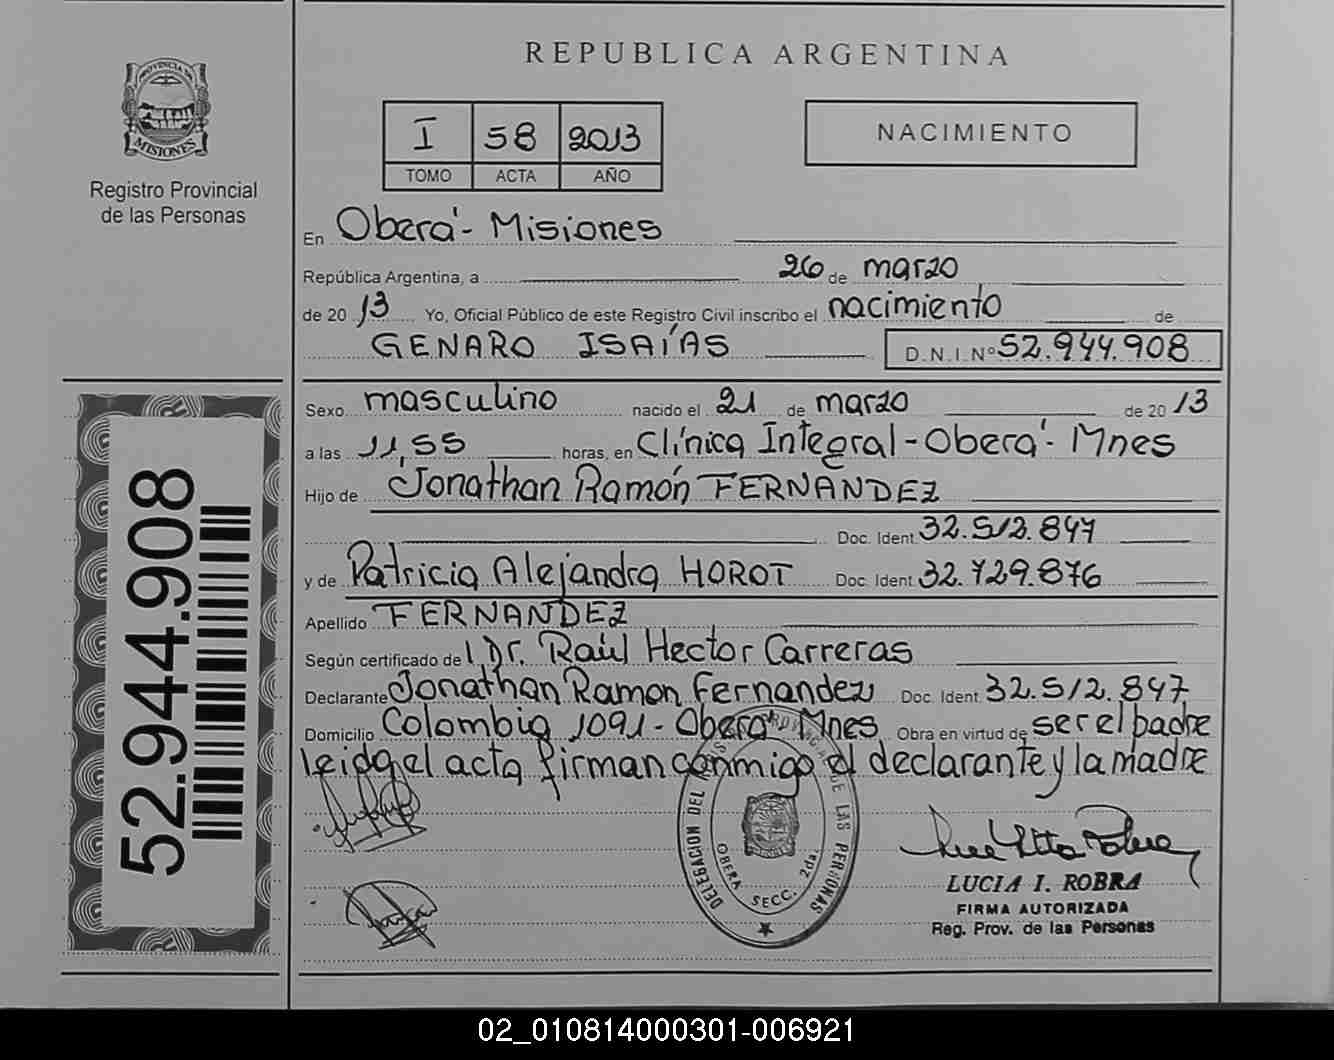 REPUBLICA ARGENTINA
PROVINCIA DE
MISIONES
Registro Provincial
de las Personas
I 58 2013
TOMO ACTA AÑO
NACIMIENTO
En Oberá - Misiones
República Argentina, a 26 de marzo
de 20 13 Yo, Oficial Público de este Registro Civil inscribo el nacimiento de
GENARO ISAÍAS D.N.I.Nº 52.944.908
Sexo masculino nacido el 21 de marzo de 20 13
a las 11,55 horas, en Clínica Integral - Oberá - Mnes
Hijo de Jonathan Ramón FERNANDEZ
Doc. Ident. 32.512.847
y de Patricia Alejandra HOROT Doc. Ident. 32.729.876
Apellido FERNANDEZ
Según certificado del Dr. Raúl Hector Carreras
Declarante Jonathan Ramon Fernandez Doc. Ident. 32.512.847
Domicilio Colombia 1091 - Oberá Mnes Obra en virtud de ser el padre
leida el acta firman conmigo el declarante y la madre
52.944.908
DELEGACION DEL REGISTRO PROVINCIAL DE LAS PERSONAS
OBERA SECC. 2da.
LUCIA I. ROBRA
FIRMA AUTORIZADA
Reg. Prov. de las Personas
02_010814000301-006921